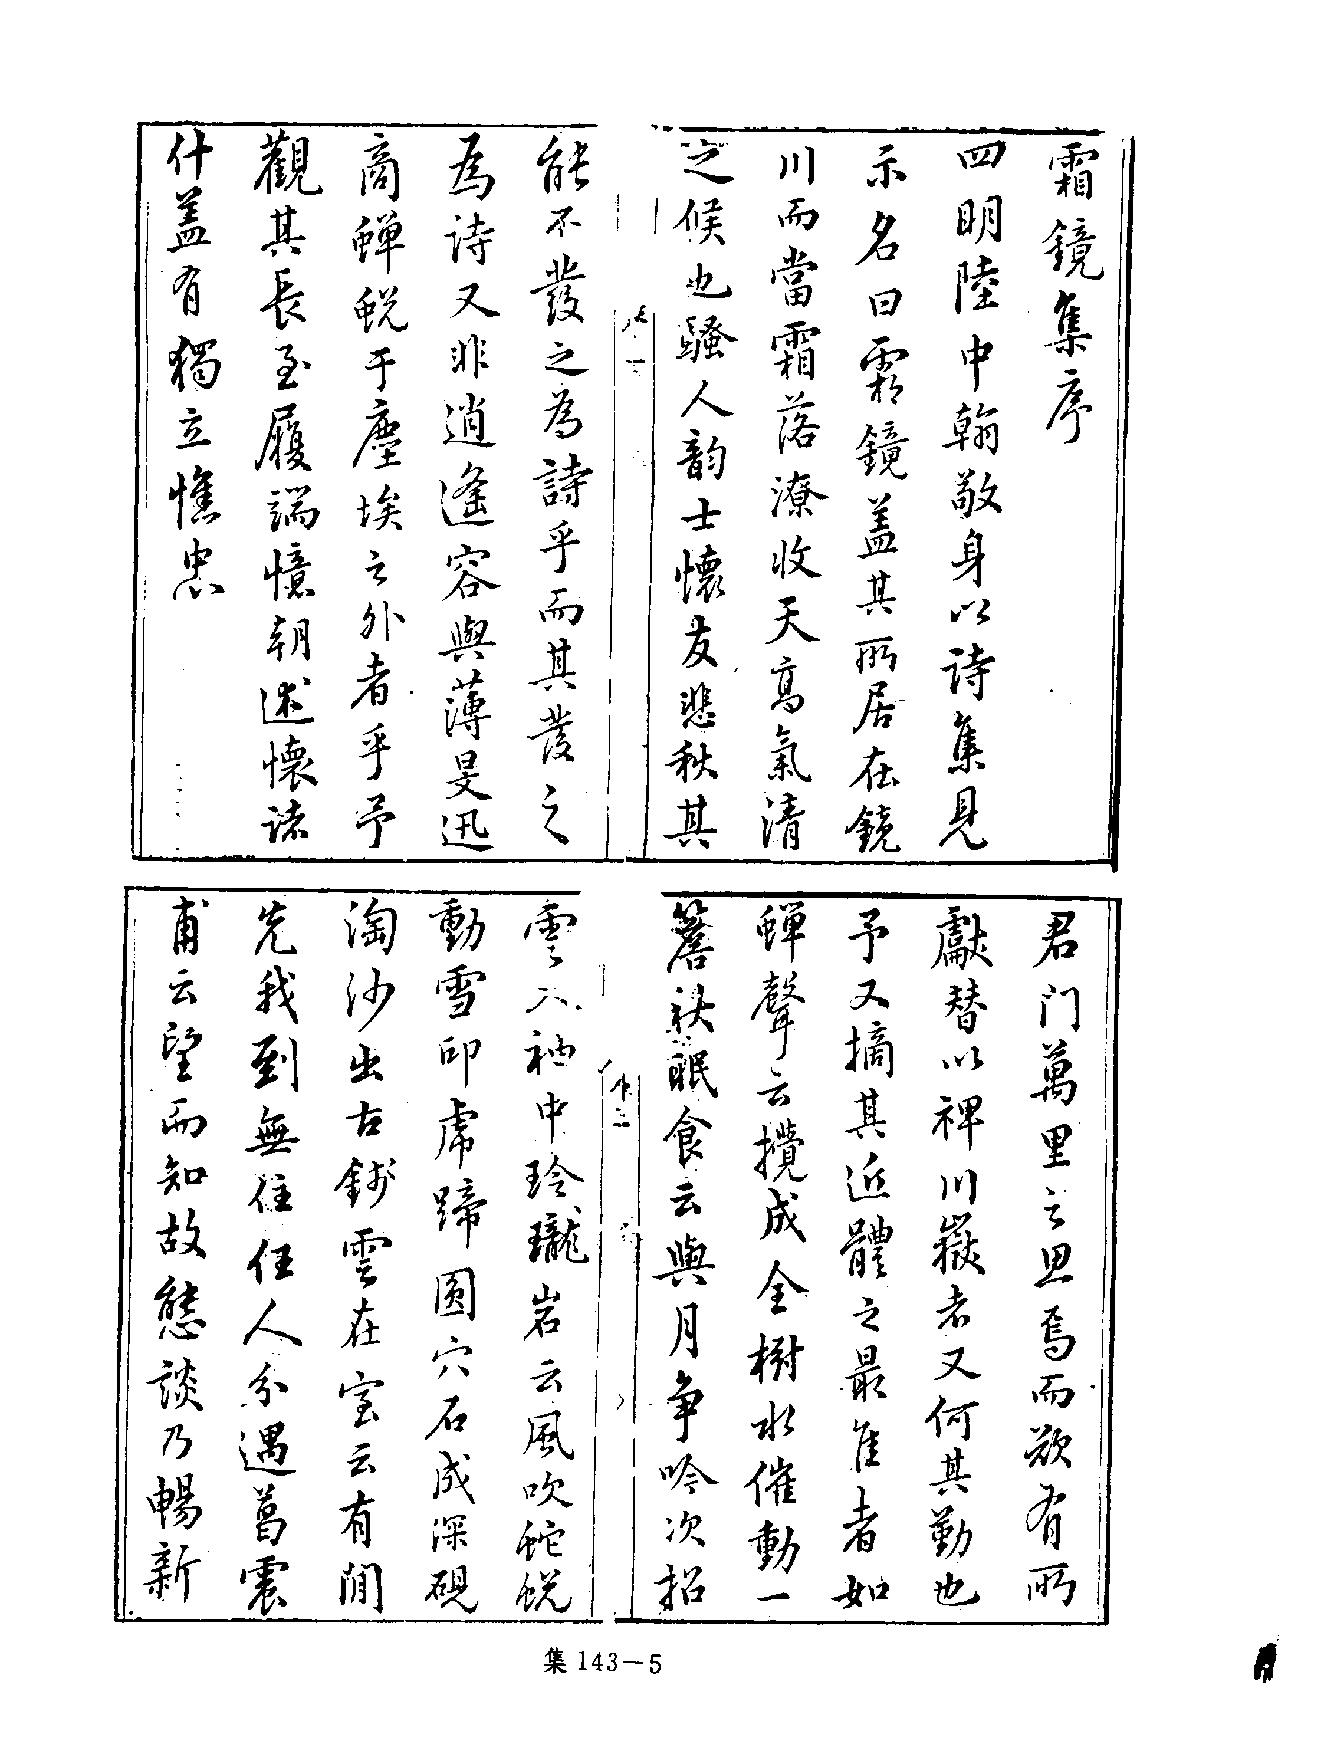 霜鏡集序
四明陸中翰敬身以詩集見
示名曰霜鏡蓋其所居在鏡
川而當霜落潦收天高氣清
之候也騷人韵士懷友悲秋其
能不發之為詩乎而其發之
為詩又非逍遙容與薄旻迅
商蟬蛻于塵埃之外者乎予
觀其長至履端憶朝述懷諸
什蓋有獨立憔忠
君門萬里之思焉而欲有所
獻替以裨川嶽者又何其勤也
予又摘其近體之最隹者如
蟬聲云攪成全樹水催動一
簷秋眠食云與月爭吟次招
雲入袖中玲瓏岩云風吹蛇蛻
動雪印虎蹄圓穴石成深硯
淘沙出古錢雲在室云有閒
先我到無住任人分遇葛震
甫云望而知故態談乃暢新
集 143—5